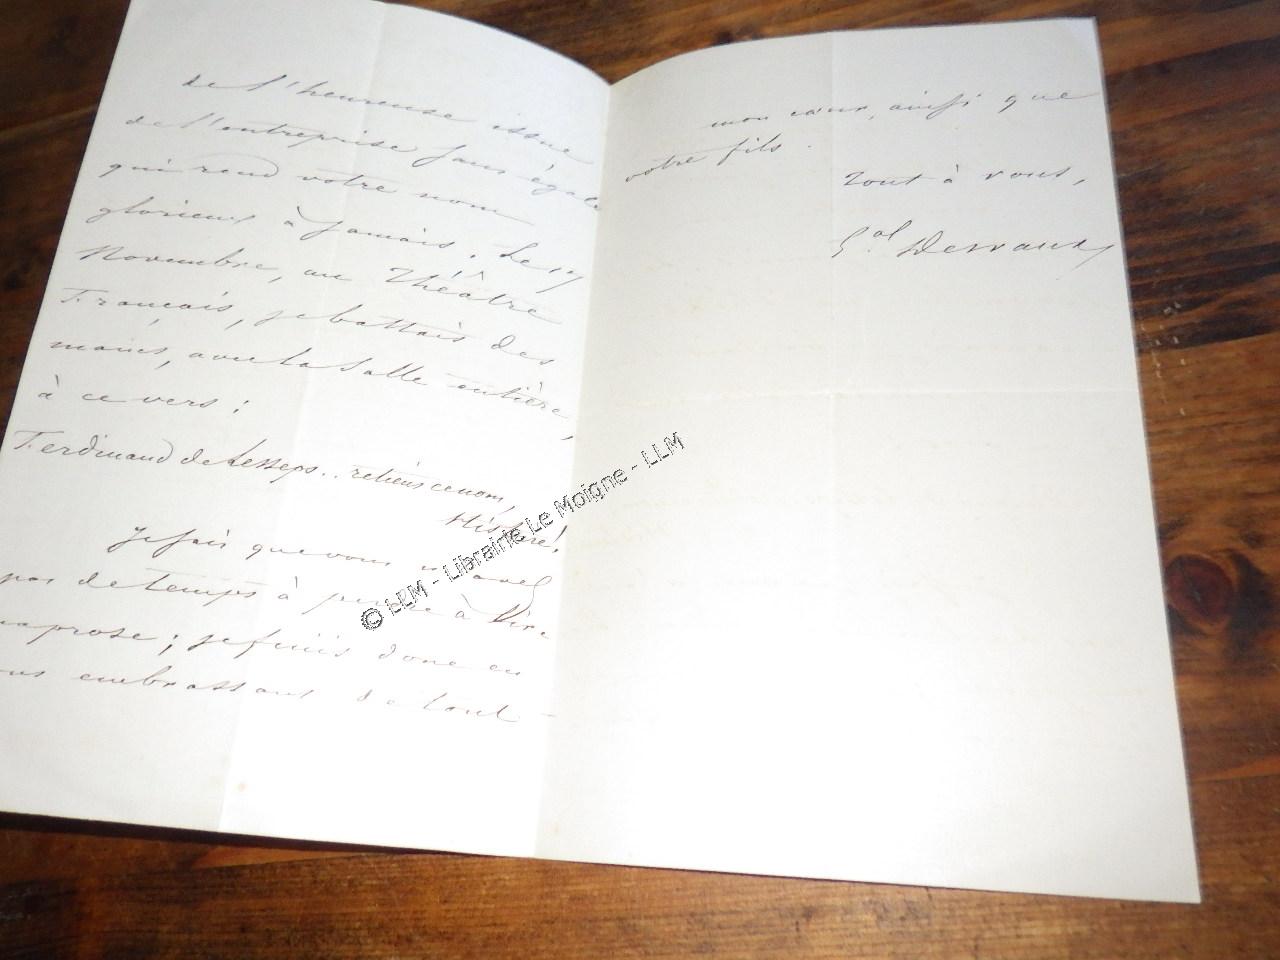 de l'heureuse issue
de l'entreprise sans égale
qui rend votre nom
glorieux à jamais. Le 17
Novembre, au Théâtre
Français, je battais des
mains, avec la salle entière,
à ce vers :
Ferdinand de Lesseps.. retiens ce nom,
Histoire!
Je sais que vous n'avez
pas de temps à perdre à lire
ma prose ; je finis donc en
vous embrassant de tout
mon cœur, ainsi que
votre fils.
Tout à vous,
Gal Desvaux
© LLM - Librairie Le Moigne - LLM